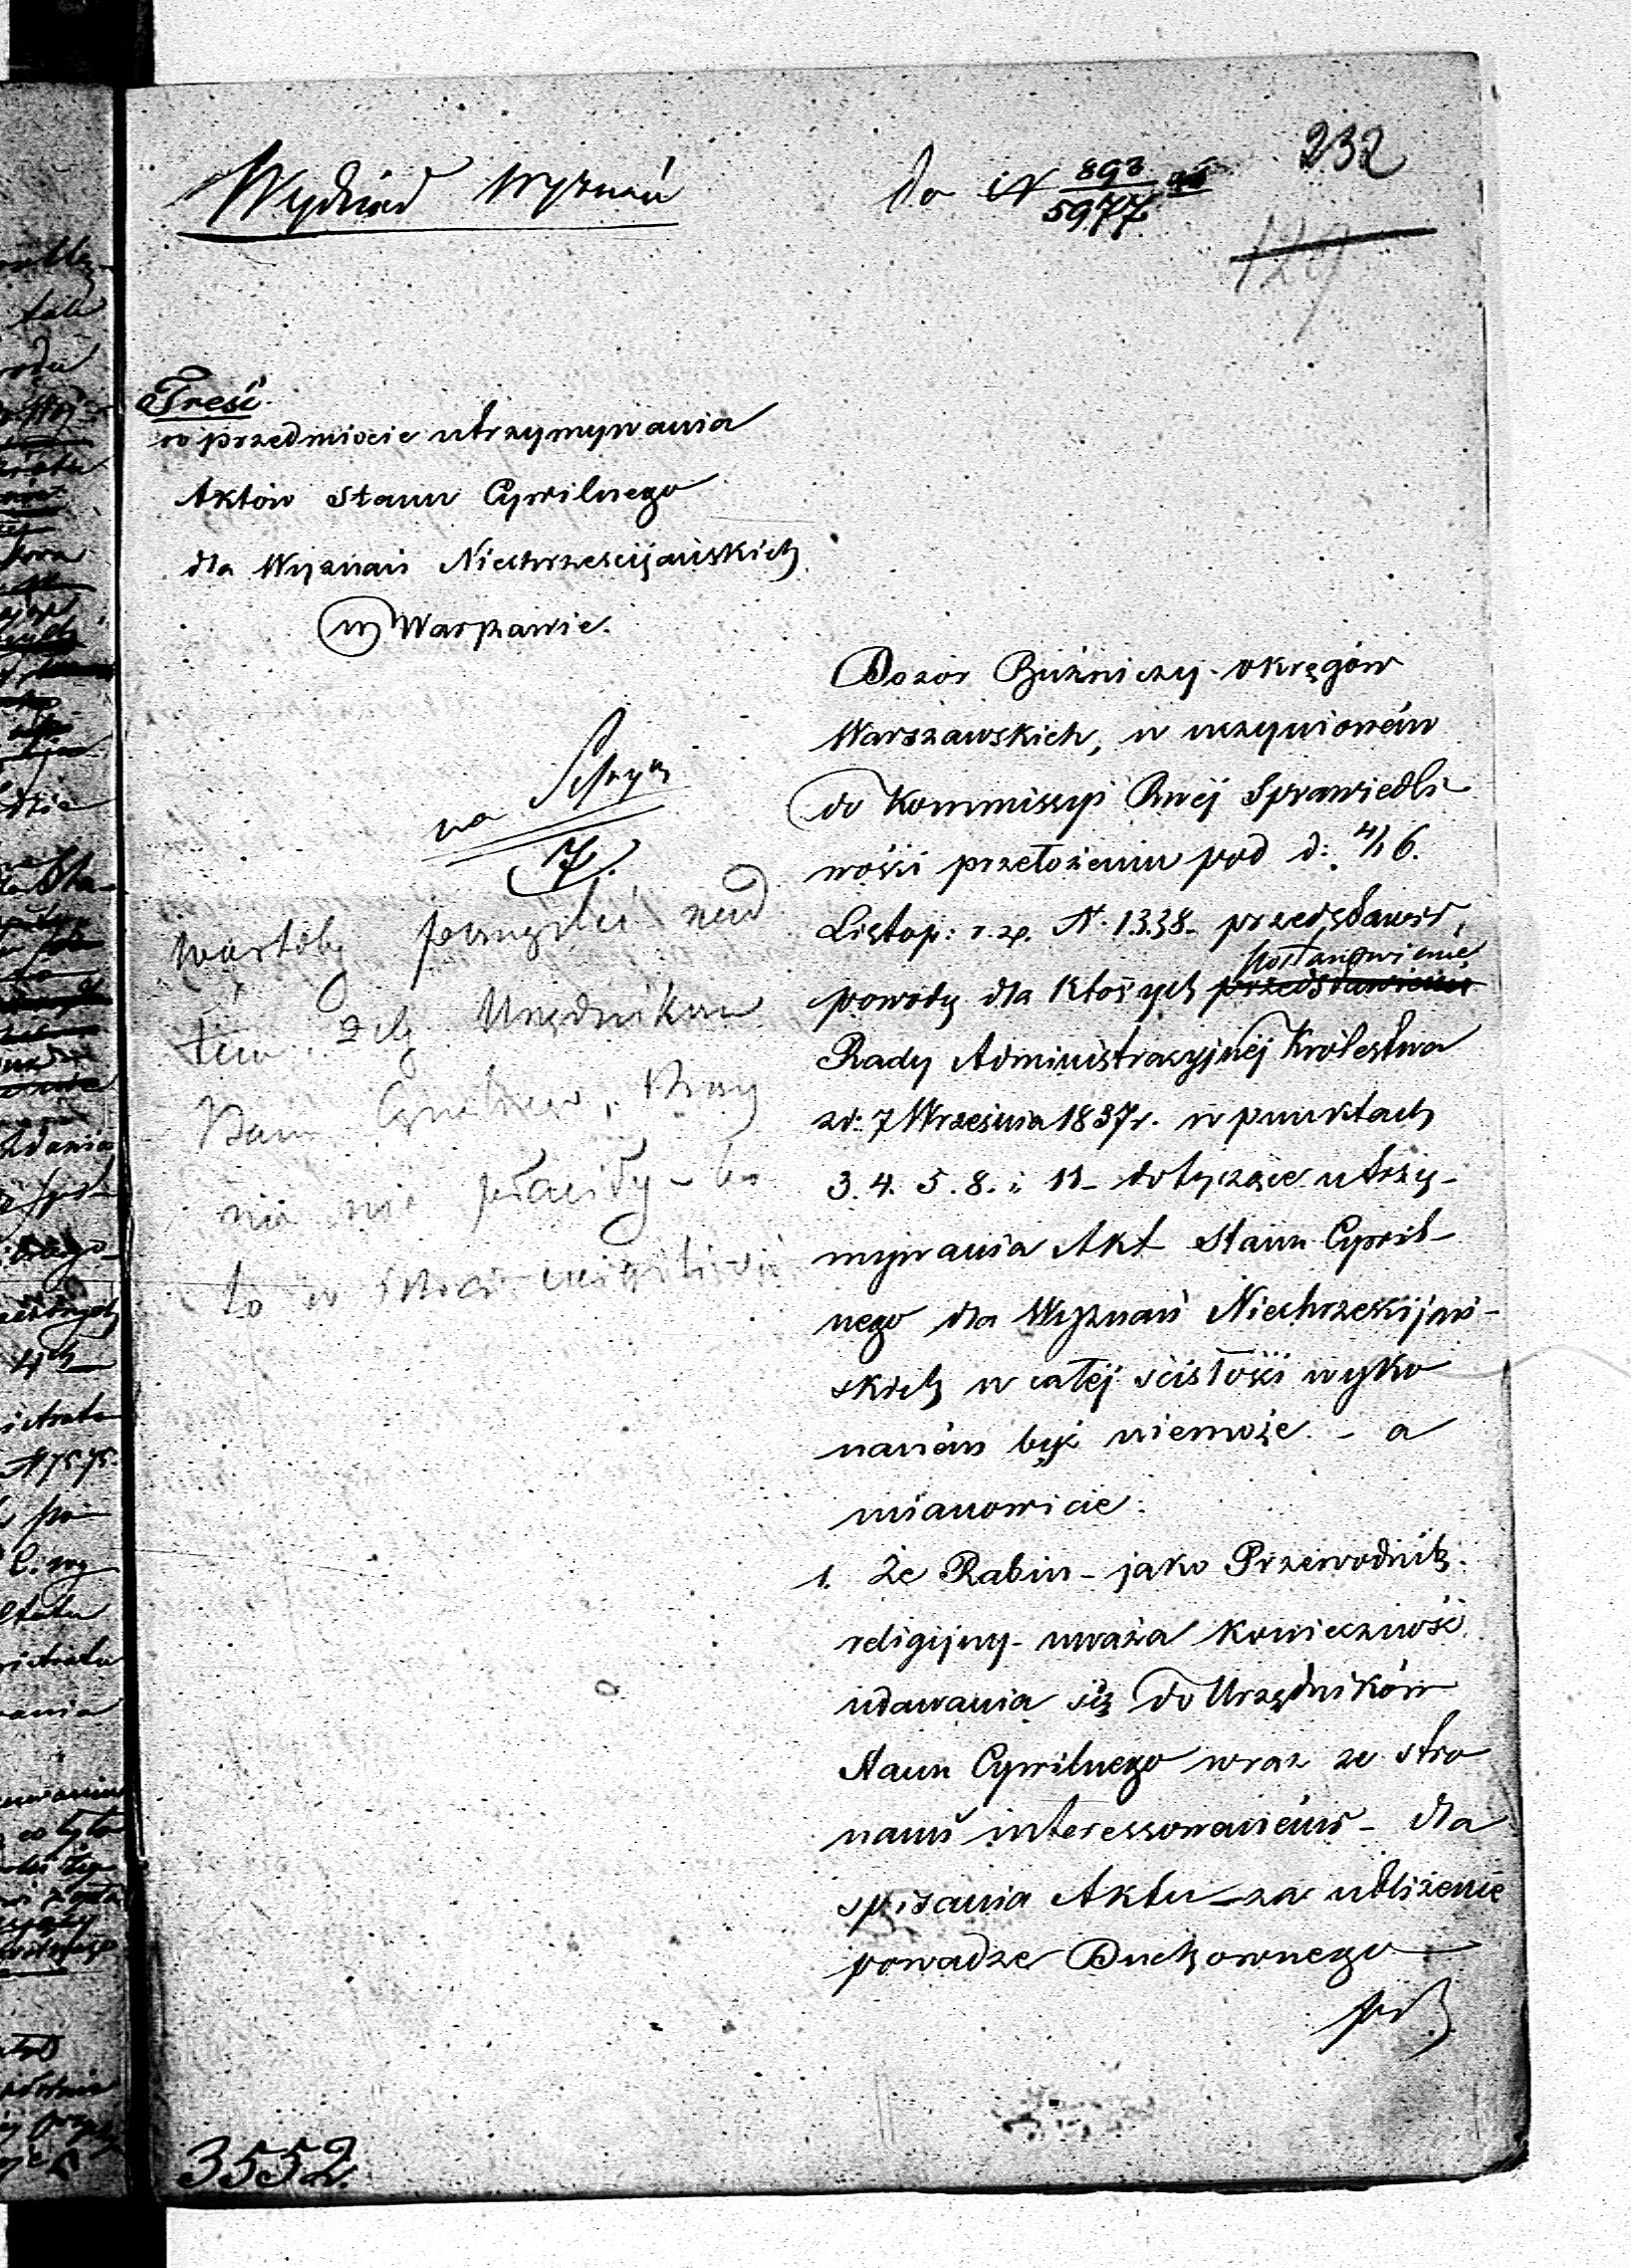 Wydział Wyznań
Do N 893/5977
232
129
Treść.
w przedmiocie utrzymywania
Aktów Stanu Cywilnego
dla Wyznań Niechrześcijańskich
w Warszawie.
na
7.
wartoby pomyśleć nad
tem, żeby Urzędnikom
Stanu Cywilnego
nie płaciły - bo
to w
Dozór Bóżniczy okręgów
Warszawskich, w uczynionem
do Kommissyi Rwej Sprawiedli
wości przełożeniu pod d: 4/16.
Listop: r. z. N. 1338. przedstawił
powody dla których przedstawienie postanowienie
Rady Administracyjnej Królestwa
z d: 7 Września 1837 r. w punktach
3. 4. 5. 8. i 11 - dotyczące utrzy-
mywania Akt Stanu Cywil-
nego dla Wyznań Niechrześcijań-
skich w całej ścisłości wyko
nanem być niemoże. - a
mianowicie:
1. Że Rabin - jako Przewodnik
religijny - uważa konieczność
udawania się do Urzędników
Stanu Cywilnego wraz ze stro
nami interessowanemi - dla
spisania Aktu - za ubliżenie
powadze Duchownego -
3552.